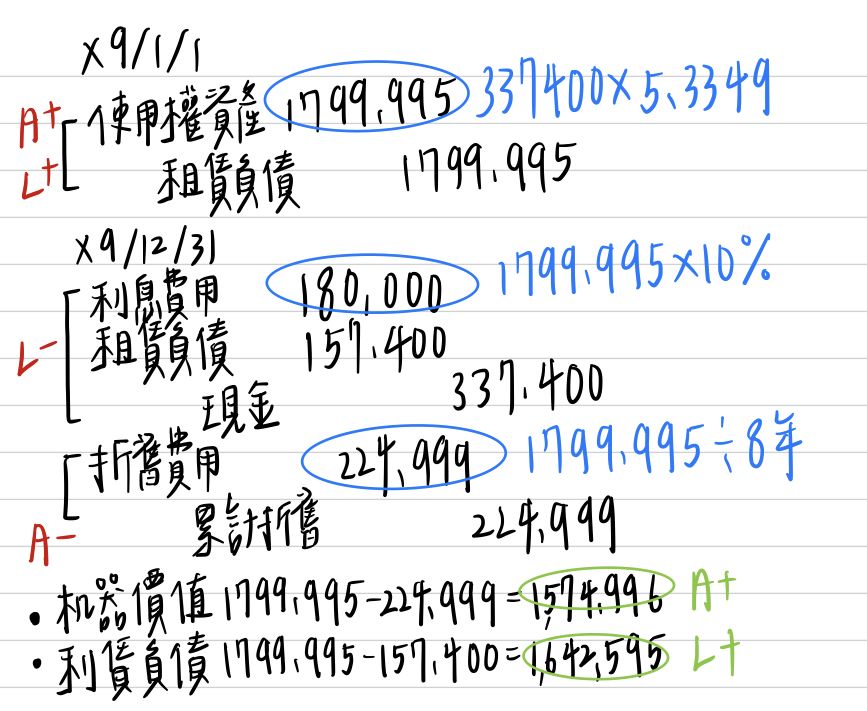 x9/1/1
A+ 使用權資產 1799,995 337400×5.3349
L+ 租賃負債 1799,995
x9/12/31
利息費用 180,000 1799,995×10%
L- 租賃負債 157,400
現金 337,400
折舊費用 224,999 1799,995÷8年
A- 累計折舊 224,999
• 机器價值 1799,995-224,999=1,574,996 A+
• 利賃負債 1799,995-157,400=1,642,595 L+